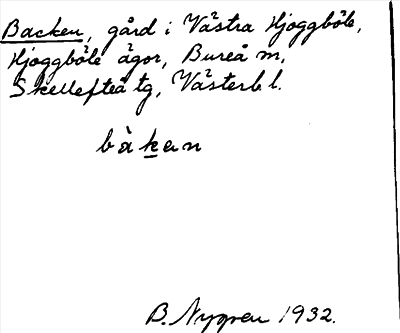 Backen, gård i Västra Hjoggböle,
Hjoggböle ägor, Bureå sn,
Skellefteå tg, Västerb l.
bàkan
B. Nygren 1932.